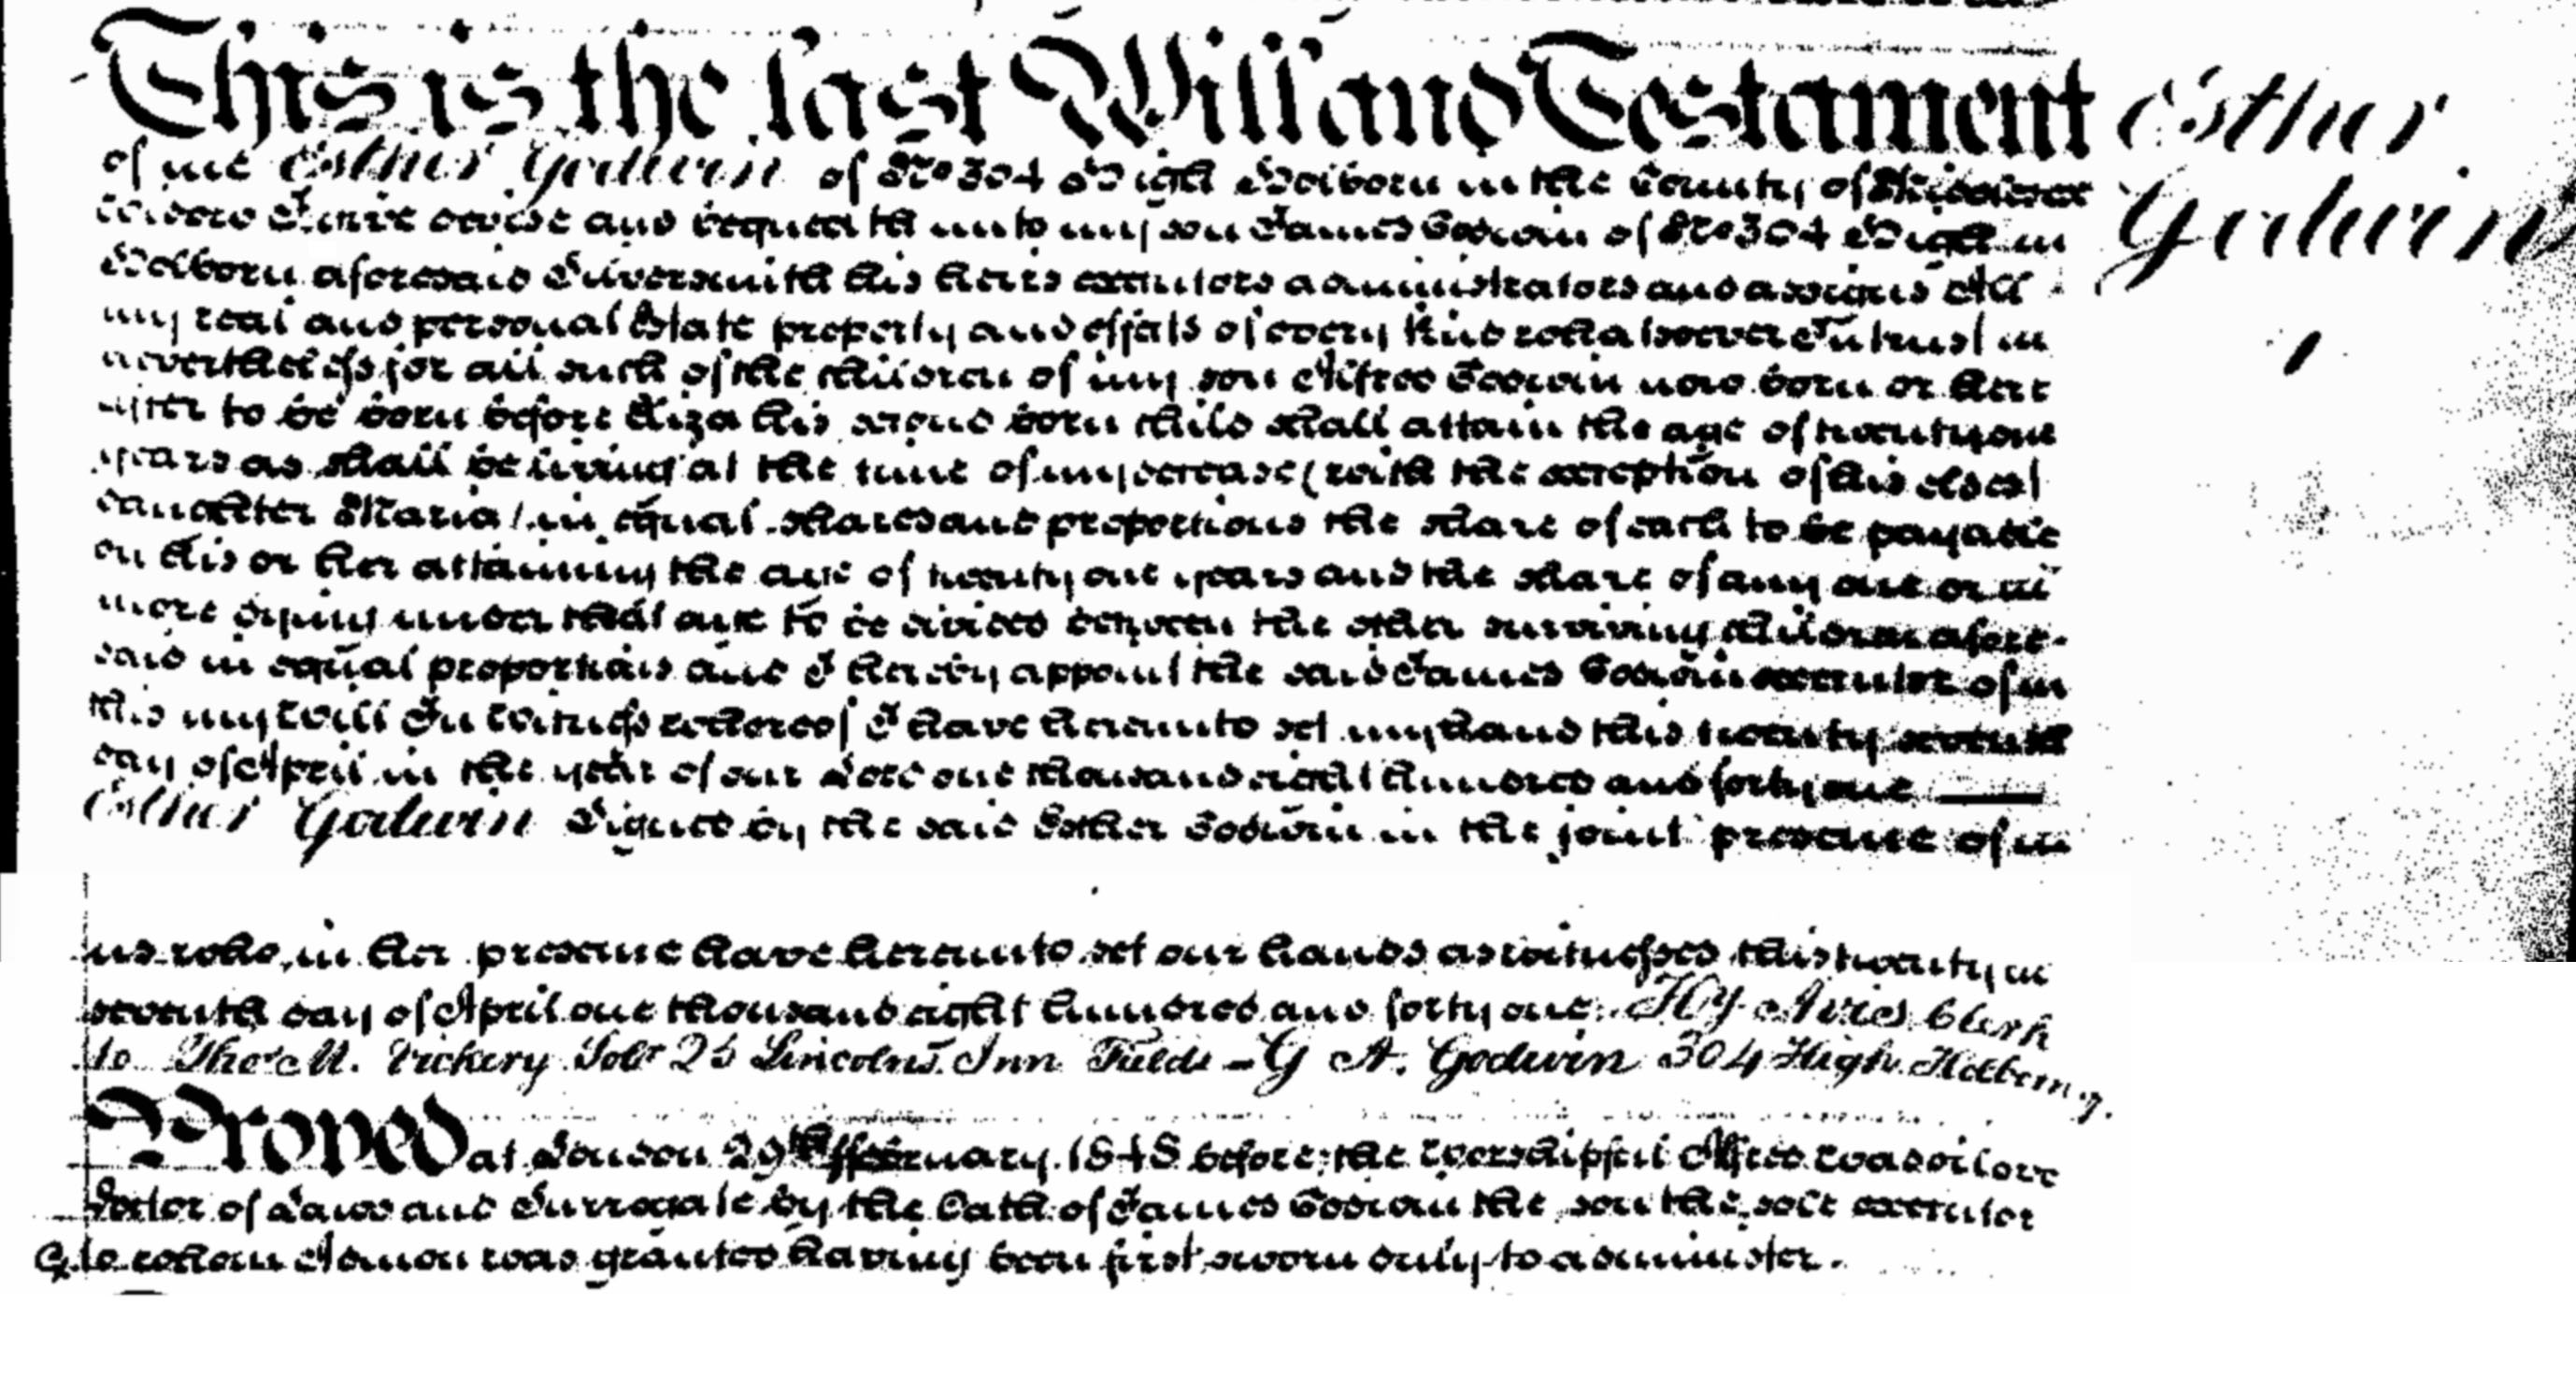 This is the last Will and Testament
Esther
Godwin
of me Esther Godwin of No 304 High Holborn in the County of Middlesex
Widow I give devise and bequeath unto my son James Godwin of No 304 High
Holborn aforesaid his heirs executors administrators and assigns All
my real and personal Estate property and effects of every kind whatsoever In trust
nevertheless for all such of the children of my son Alfred Godwin now born or here
after to be born before Eliza his second born child shall attain the age of twenty one
years as shall be living at the time of my decease (with the exception of his eldest
daughter Maria) in equal shares and proportions the share of each to be payable
on his or her attaining the age of twenty one years and the share of any one or
more dying under that age to be divided between the other surviving children afore-
said in equal proportions and I hereby appoint the said James Godwin executor of
this my Will In witness whereof I have hereunto set my hand this twenty seventh
day of April in the year of our Lord one thousand eight hundred and forty one
Esther Godwin Signed by the said Esther Godwin in the joint presence of
us who in her presence have hereunto set our hands as witnesses this twenty
seventh day of April one thousand eight hundred and forty one. Hy Clerk
to Thos M. Vickery Solr 25 Lincolns Inn Fields - G A. Godwin 304 High Holborn
Proved at London 29th ffebruary 1848 before the Worshipful Alfred Waddilove
Doctor of Laws and Surrogate by the Oath of James Godwin the son the sole executor
to whom Admon was granted having been first sworn duly to administer.